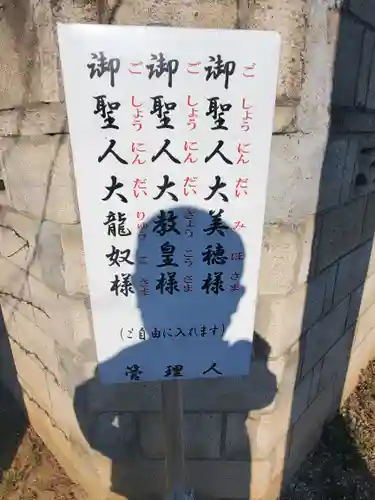 御聖人大美穂様
ごしょうにんだいみほさま
御聖人大教皇様
ごしょうにんだいきょうこうさま
御聖人大龍奴様
ごしょうにんだいりゅうさま
(ご自由に入れます)
管理人